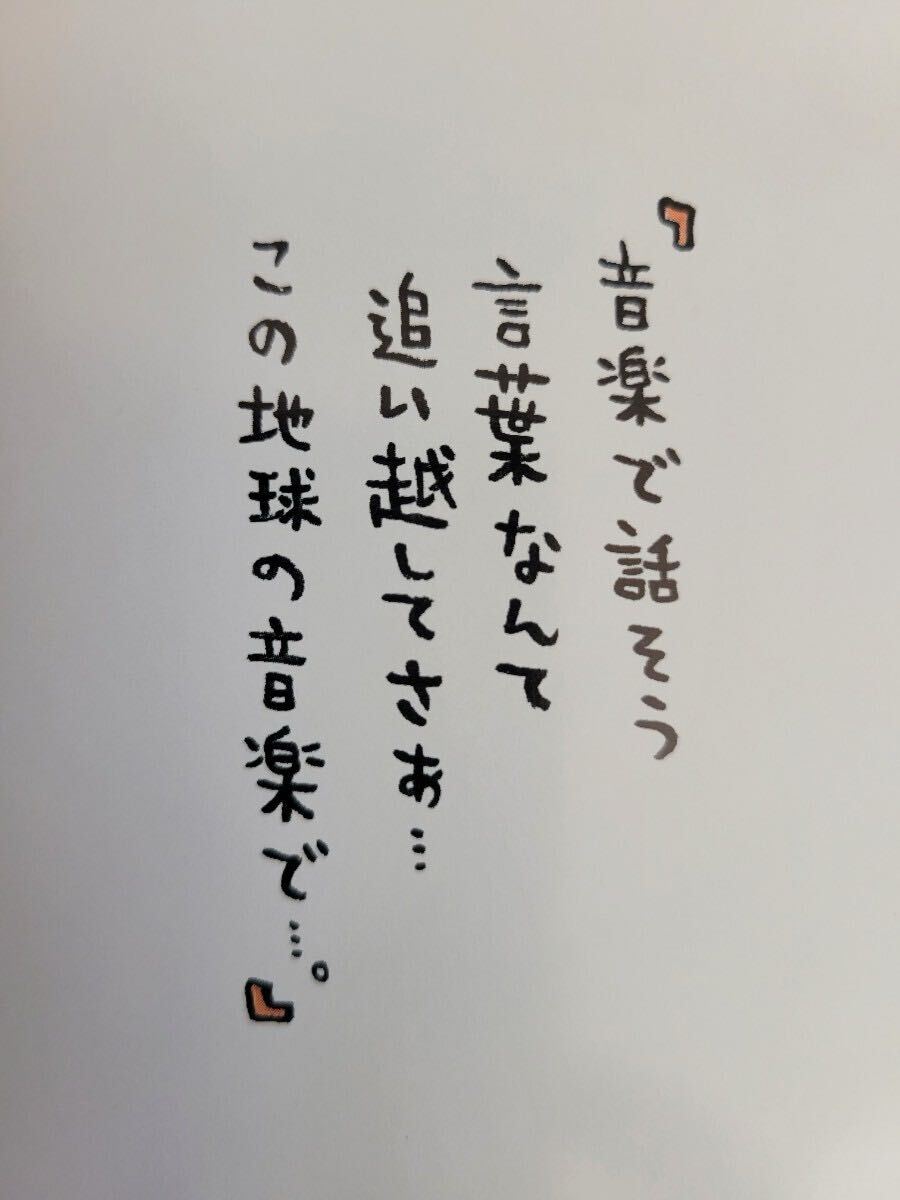 『音楽で話そう
言葉なんて
追い越してさぁ…
この地球の音楽で…。』